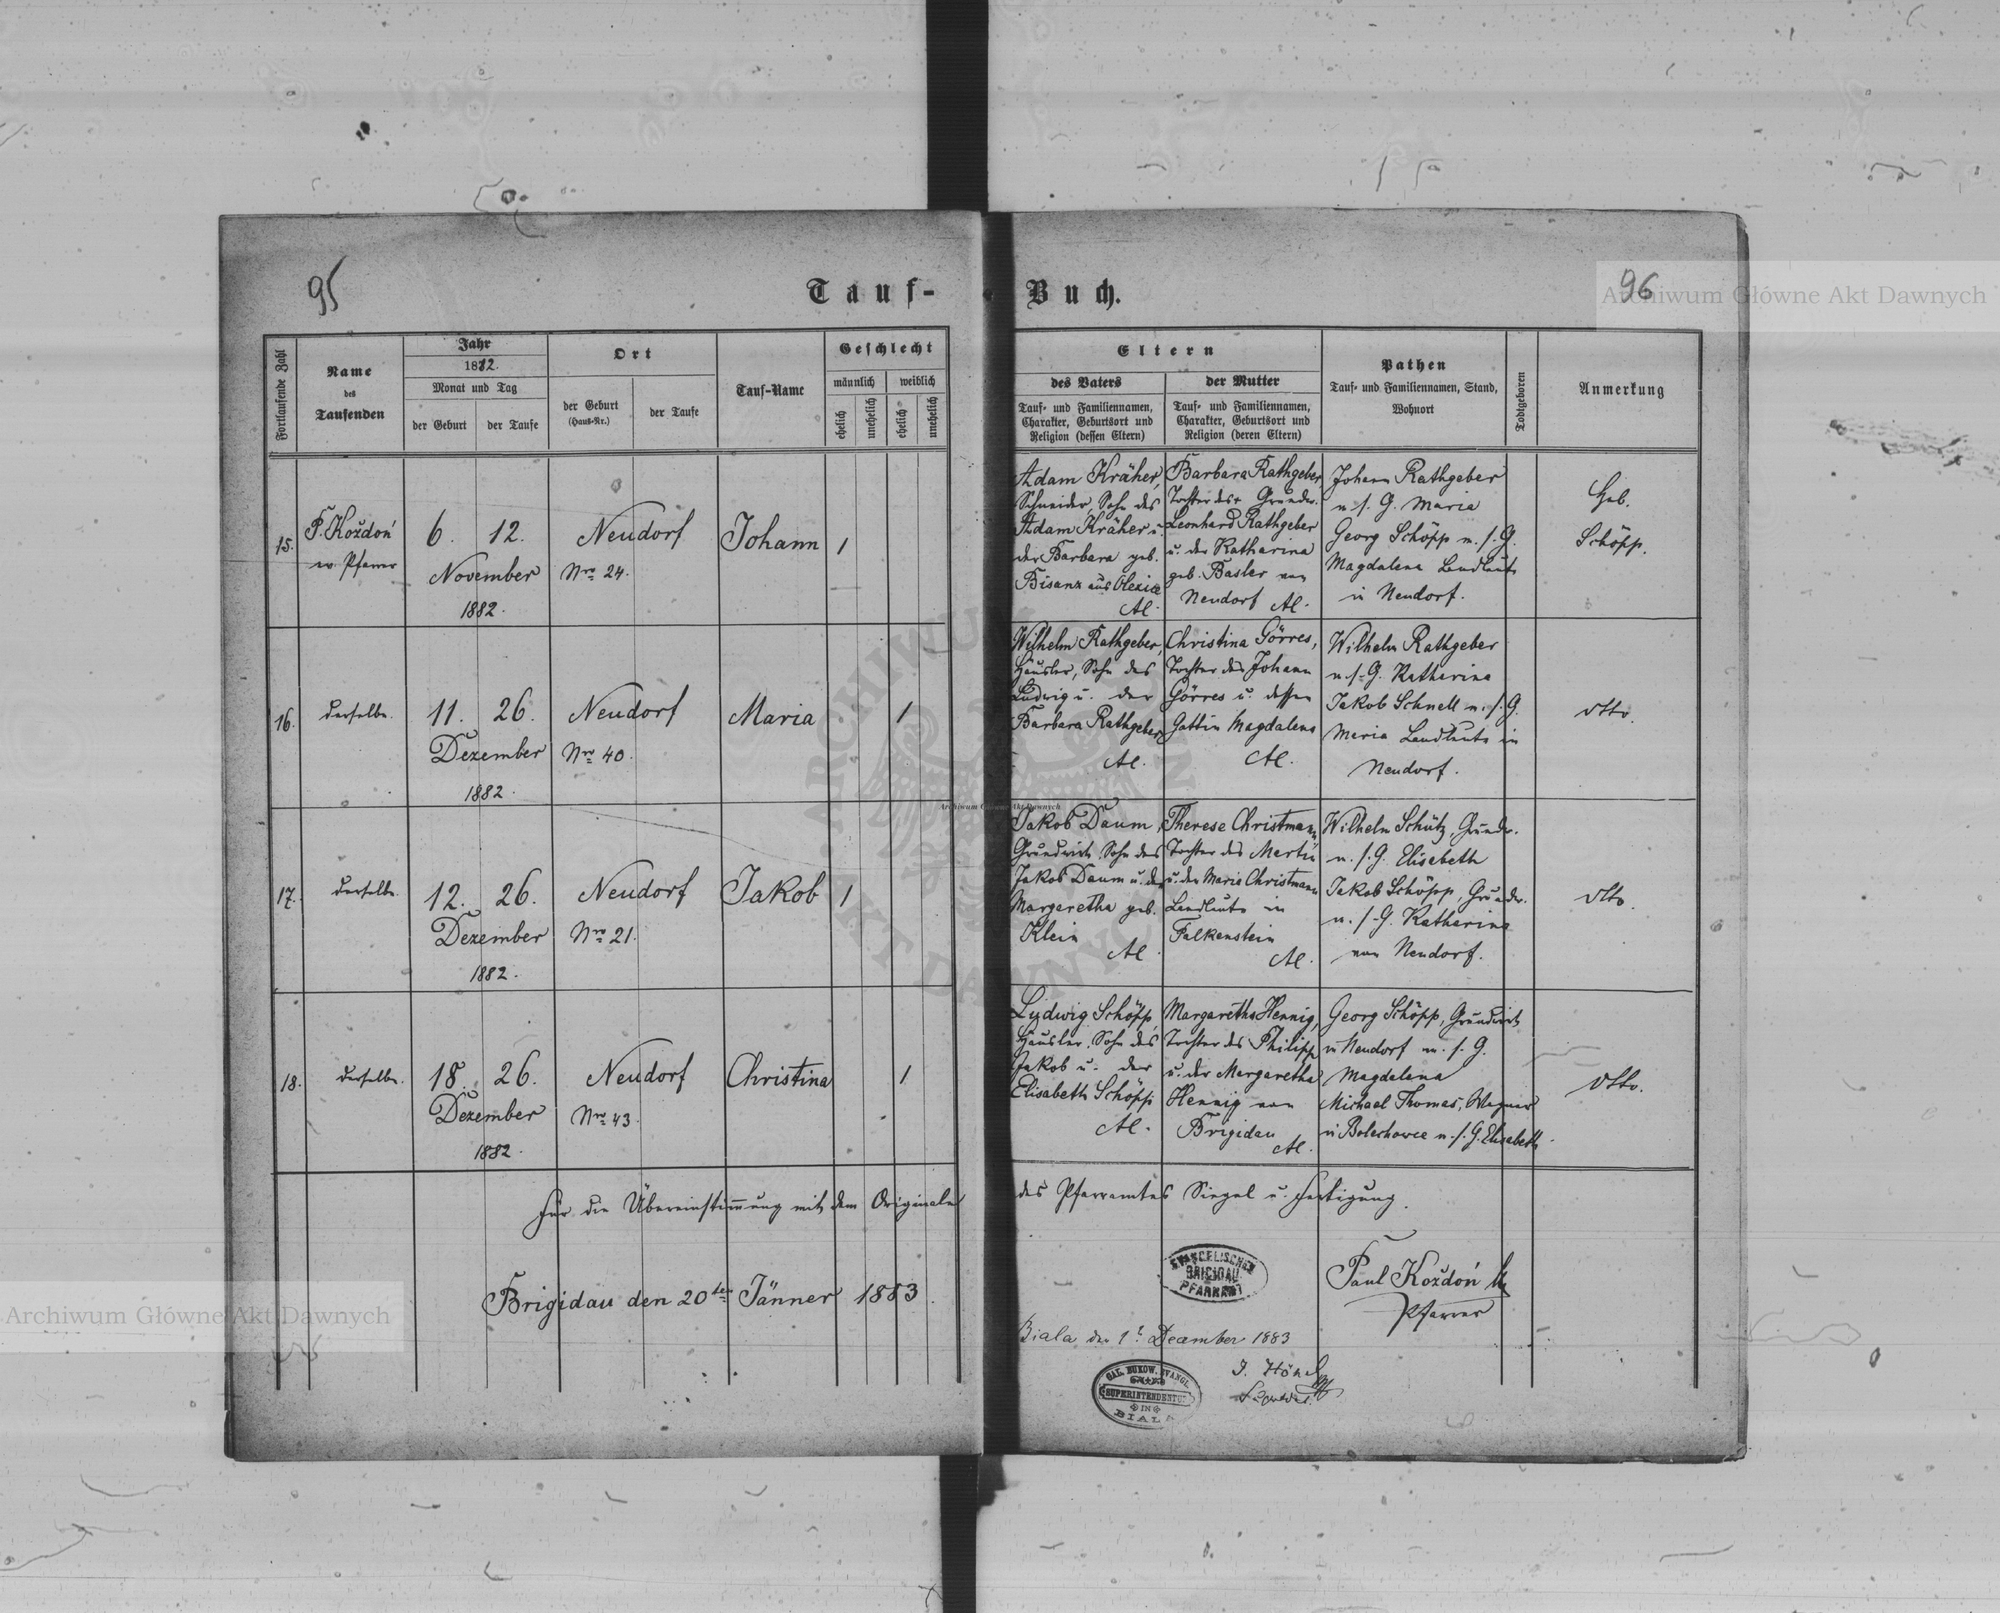 95
Tauf-
Buch.
96
Archiwum Główne Akt Dawnych
Fortlaufende Zahl
Name
des
Taufenden
Jahr
1882.
Monat und Tag
der Geburt
der Taufe
Ort
der Geburt
(Haus-Nr.)
der Taufe
Tauf-Name
Geschlecht
männlich
weiblich
ehelich
unehelich
ehelich
unehelich
Eltern
des Vaters
Tauf- und Familiennamen,
Charakter, Geburtsort und
Religion (dessen Eltern)
der Mutter
Tauf- und Familiennamen,
Charakter, Geburtsort und
Religion (deren Eltern)
Pathen
Tauf- und Familiennamen, Stand,
Wohnort
Todtgeboren
Anmerkung
15.
P. Koždoń
ev. Pfarrer
6. 12.
November
1882.
Neudorf
Nro 24.
Johann
1
Adam Kräher,
Schneider, Sohn des
Adam Kräher u.
der Barbara geb.
Bisanz aus
AC.
Barbara Rathgeber,
Tochter des + Grundw.
Leonhard Rathgeber
u. der Katharina
geb. Basler von
Neudorf AC.
Johann Rathgeber
u. s. G. Maria
Georg Schöpp u. s. G.
Magdalena Landleute
in Neudorf.
Heb.
Schöpp.
16.
derselbe.
11. 26.
Dezember
1882.
Neudorf
Nro 40.
Maria
1
Wilhelm Rathgeber,
Häusler, Sohn des
Ludwig u. der
Barbara Rathgeber
AC.
Christina Görres,
Tochter des Johann
Görres u. dessen
Gattin Magdalena
AC.
Wilhelm Rathgeber
u. s. G. Katharina
Jakob Schnell u. s. G.
Maria Landleute in
Neudorf.
dtto.
17.
derselbe.
12. 26.
Dezember
1882.
Neudorf
Nro 21.
Jakob
1
Jakob Daum,
Grundwirth, Sohn des
Jakob Daum u. der
Margaretha geb.
Klein
AC.
Therese Christmann
Tochter des Martin
u. der Maria Christmann
Landleute in
Falkenstein
AC.
Wilhelm Schütz, Grundw.
u. s. G. Elisabeth
Jakob Schöpp, Grundw.
u. s. G. Katharina
von Neudorf.
dtto.
18.
derselbe.
18. 26.
Dezember
1882.
Neudorf
Nro 43.
Christina
1
Ludwig Schöpp,
Häusler, Sohn des
Jakob u. der
Elisabeth Schöpp
AC.
Margaretha Hennig,
Tochter des Philipp
u. der Margaretha
Hennig von
Brigidau
AC.
Georg Schöpp, Grundwirth
in Neudorf u. s. G.
Magdalena
Michael Thomas, Wagner
in Bolechowce u. s. G. Elisabeth.
dtto.
Für die Übereinstimmung mit dem Originale
des Pfarramtes Siegel u. Fertigung.
Brigidau den 20ten Jänner 1883.
EVANGELISCHES
BRIGIDAU
PFARRAMT
Paul Koždoń
Pfarrer
Biala den 1t December 1883
GAL. BUKOW. EVANGL.
SUPERINTENDENTUR
IN
BIALA
Archiwum Główne Akt Dawnych
Archiwum Główne Akt Dawnych
ARCHIWUM
AKT DAWNYCH